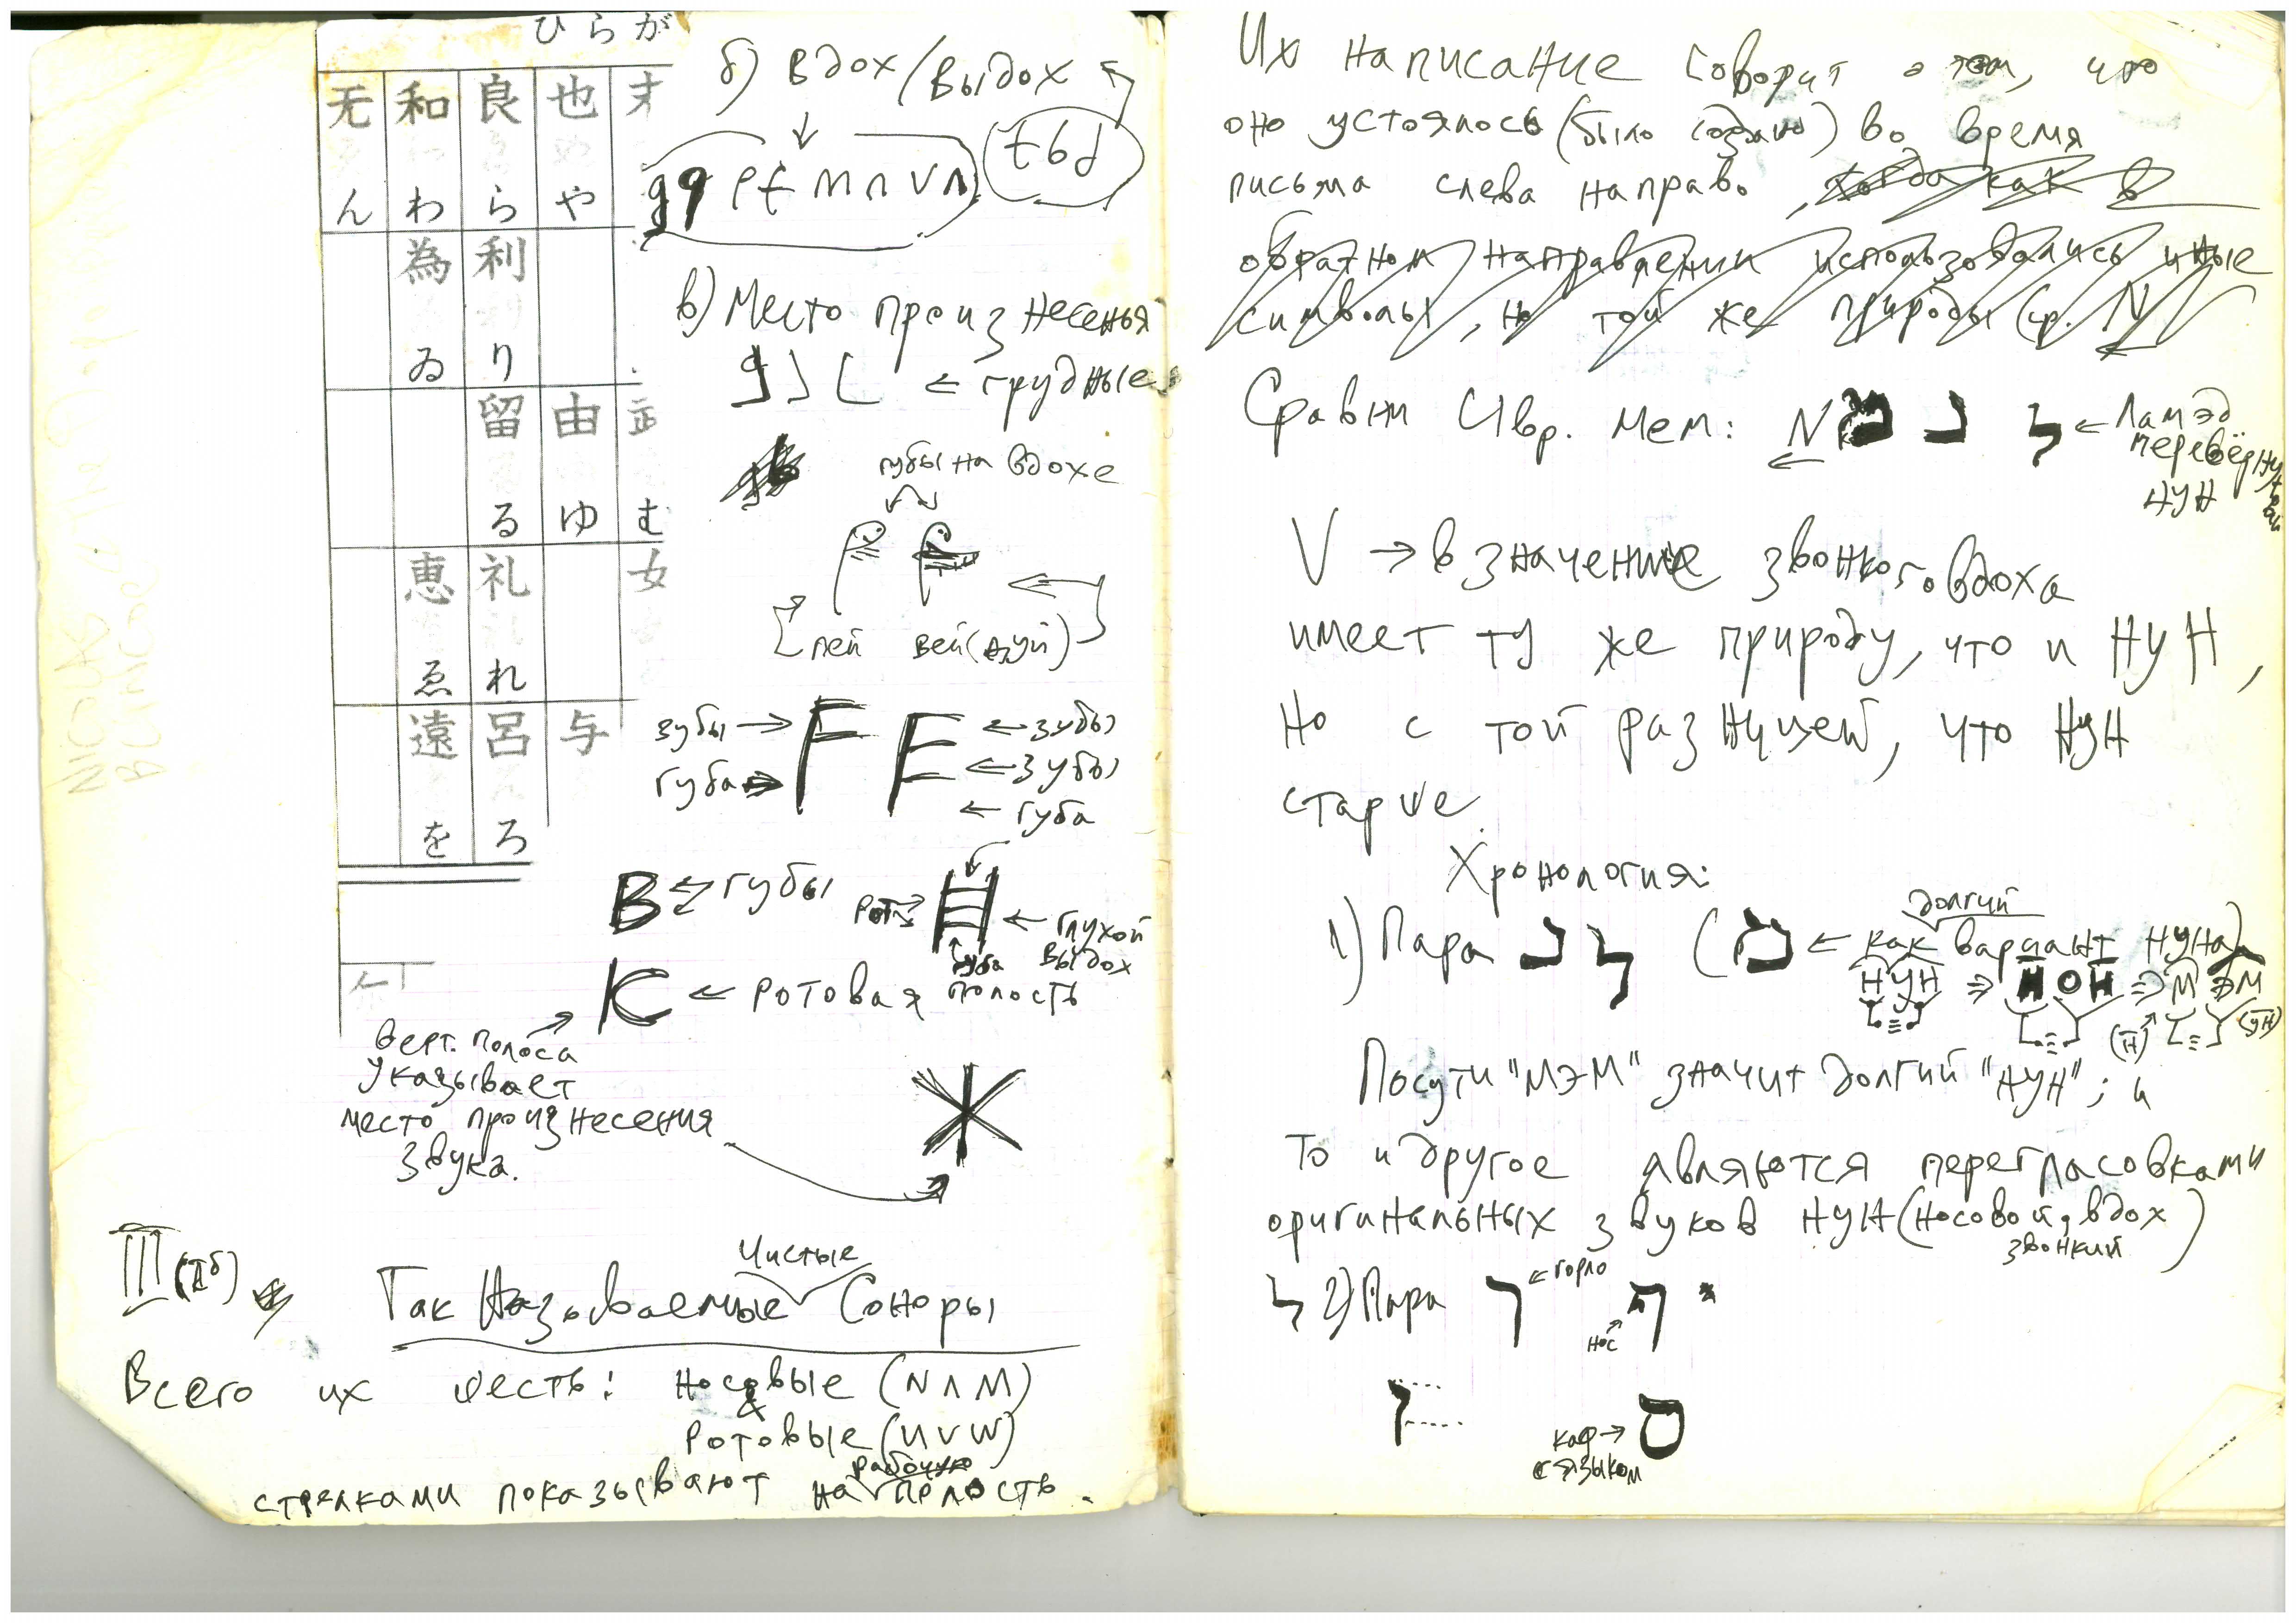 ひらが
无 和 良 也
ん わ ら や
為 利
ゐ り
留 由
る ゆ む
恵 礼 女
ゑ れ
遠 呂 与
を ろ
б) вдох/выдох
gq pf m n v л
в) Место произнесенья
← грудные
губы на вдохе
пей вей (дуй)
зубы → F E ← зубы
губа → ← зубы
← губа
B ← губы
рот → ← глухой выдох
губа
K ← ротовая полость
верт. полоса
указывает
место произнесения
звука.
Ж
III (Iб)
Так Называемые чистые Соноры
Всего их шесть: носовые (N Λ M)
&
ротовые (И V W)
стрелками показывают на рабочую полость.
Их написание говорит о том, что
оно устоялось (было создано) во время
письма слева направо, тогда как в
обратном направлении использовались иные
символы, но той же природы (ср. N
Сравни Ивр. мем: N מ נ ל ← Ламэд
перевёрнутый
нун
V → в значение звонкого вдоха
имеет ту же природу, что и НУН,
но с той разницей, что НУН
старше.
Хронология:
1) Пара נ ל (מ ← как долгий вариант НУНа)
НУН ⇒ НОН ⇒ МЭМ
(Н) (УН)
Посути "МЭМ" значит долгий "НУН"; и
то и другое являются перегласовками
оригинальных звуков НУН (носовой, вдох
звонкий)
ל 2) Пара ך ← горло ק
нос
каф → ס
с языком